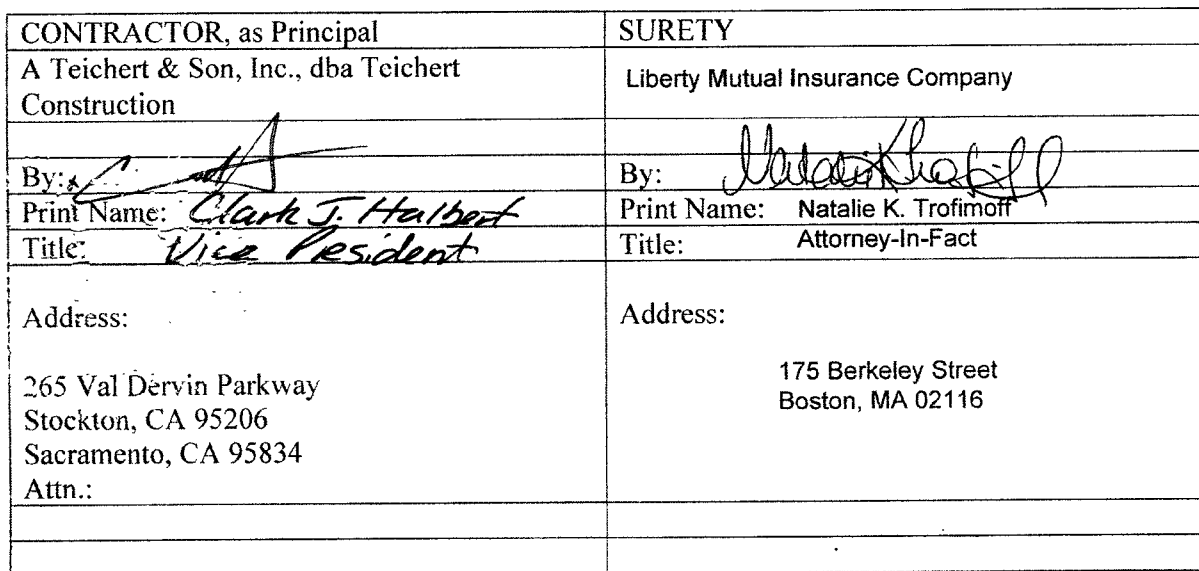 CONTRACTOR, as Principal
SURETY
A Teichert & Son, Inc., dba Teichert
Construction
Liberty Mutual Insurance Company
By:
By:
Print Name: Clark J. Halbert
Print Name: Natalie K. Trofimoff
Title: Vice President
Title: Attorney-In-Fact
Address:
265 Val Dervin Parkway
Stockton, CA 95206
Sacramento, CA 95834
Attn.:
Address:
175 Berkeley Street
Boston, MA 02116